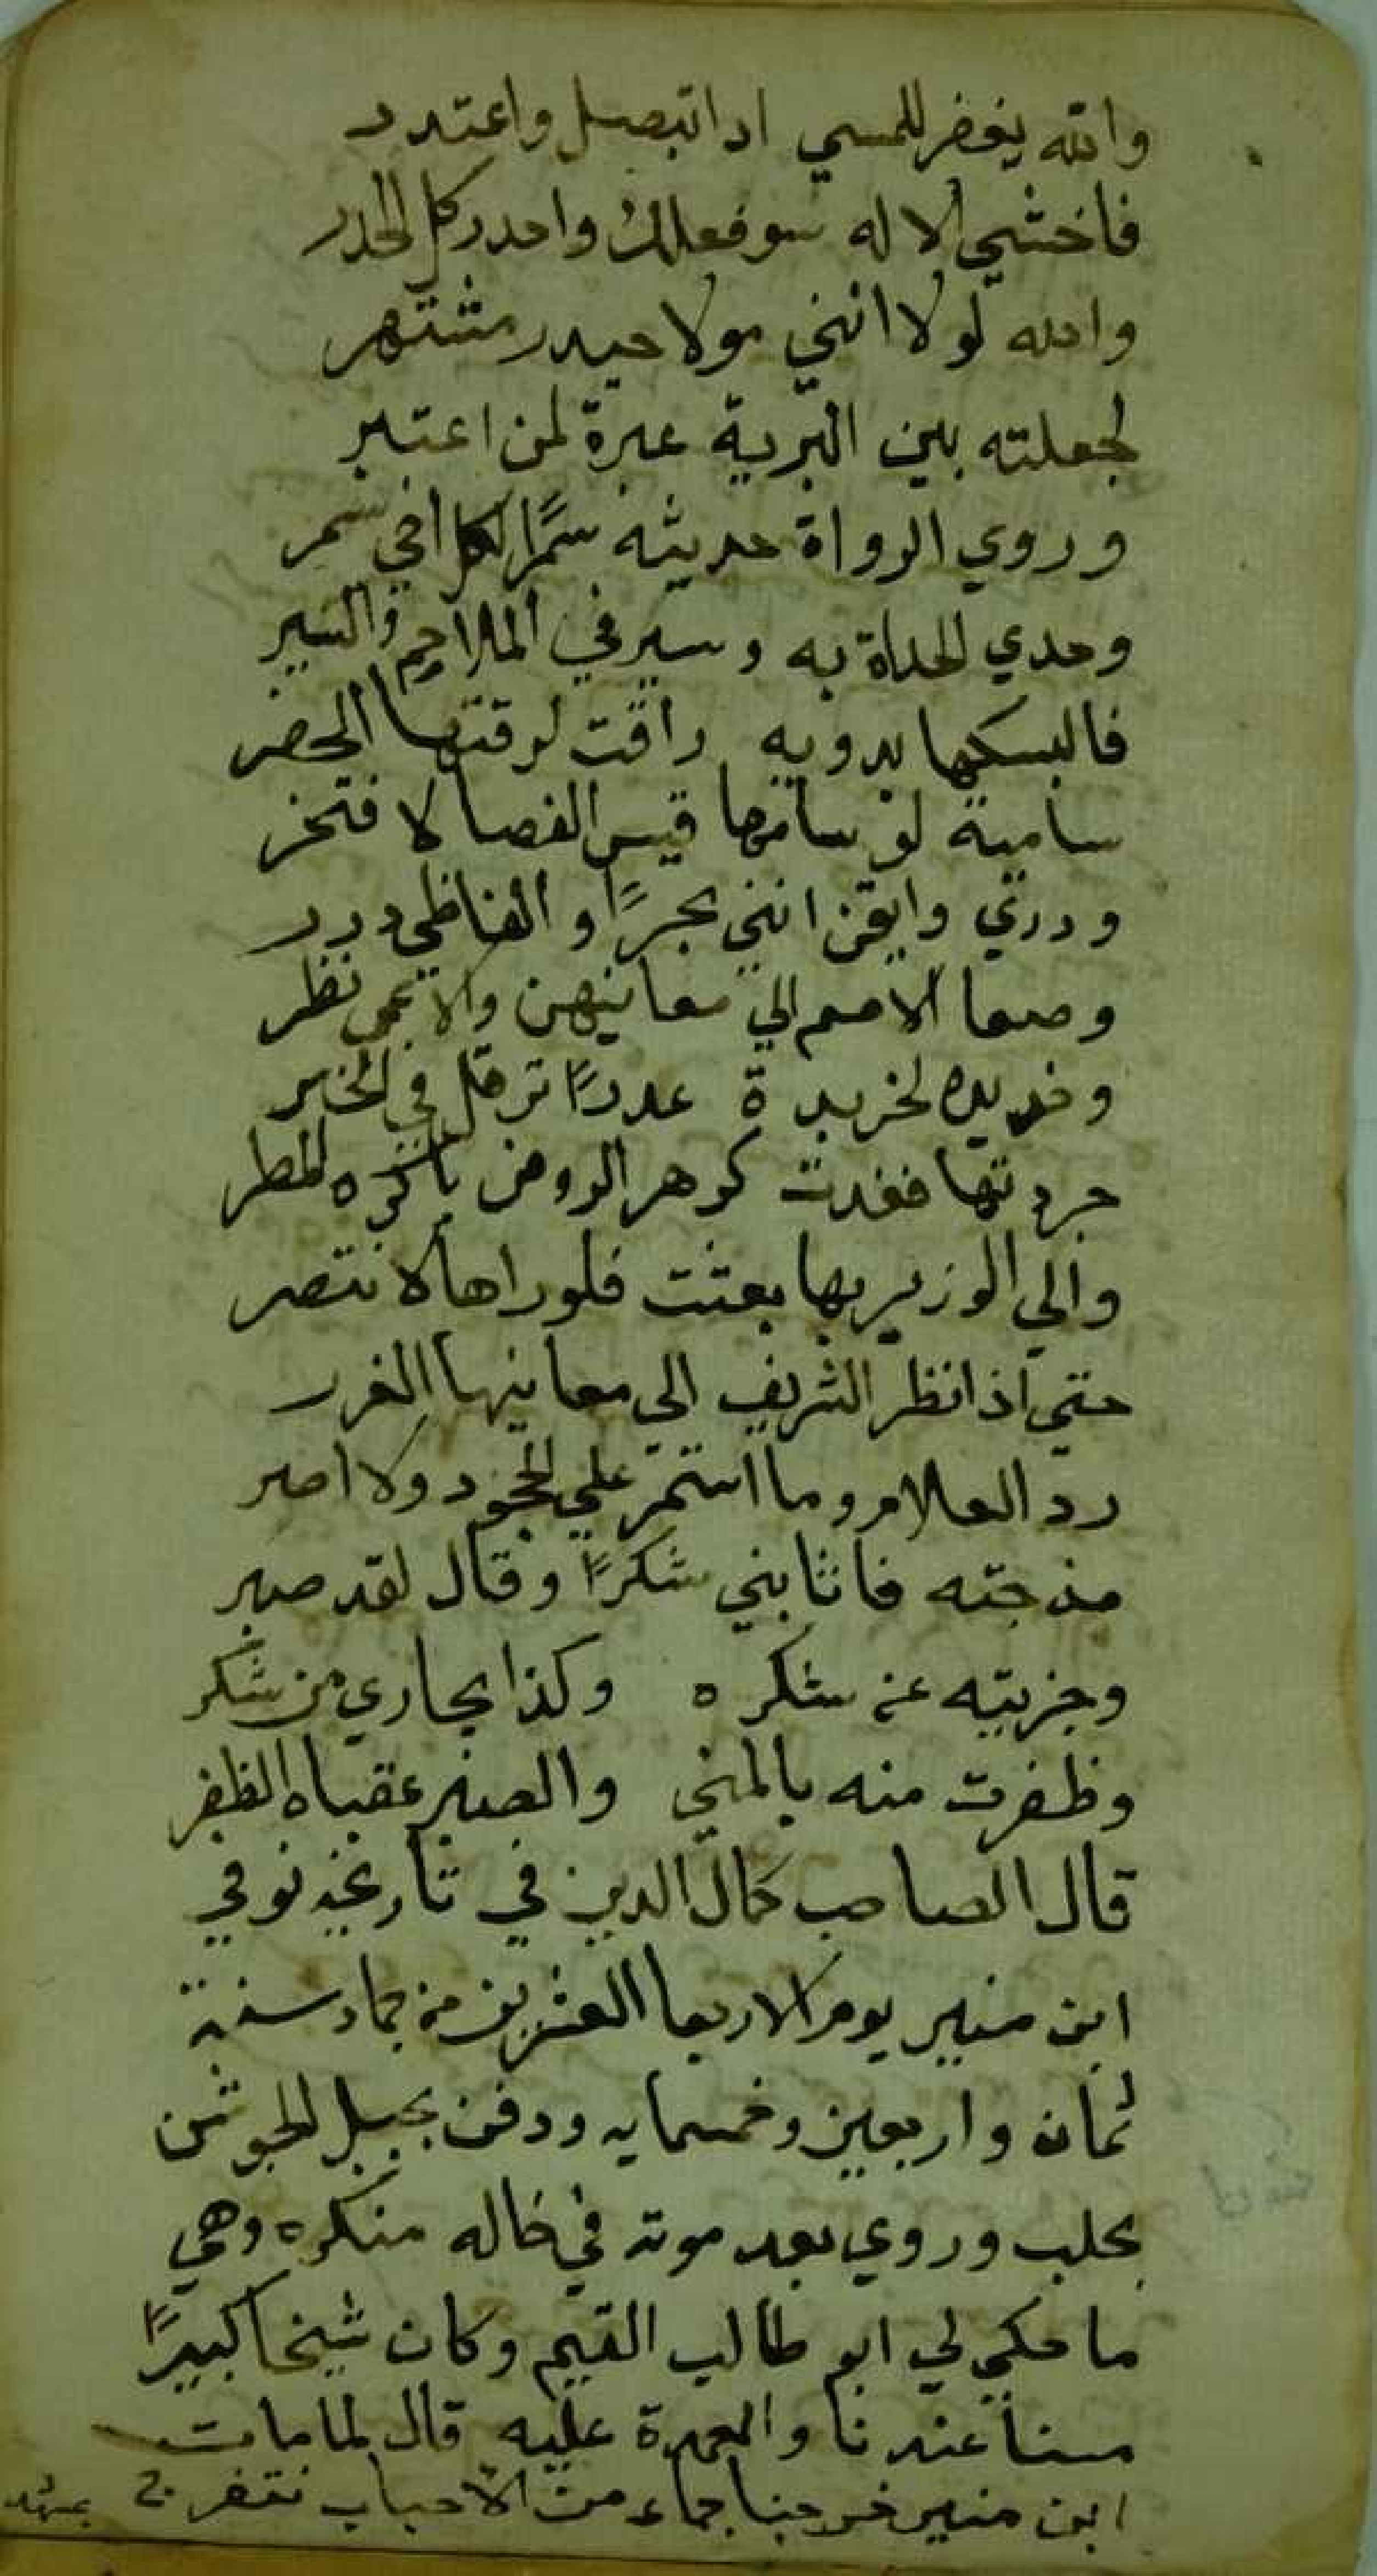 والله يغفر للمسي اداتبصل واعتدد
فاخشي الاله سوفعلك واحدر كل الحدر
والله لولا انني مولا حيدر مشتهر
لجعلته بين البرية عبرة لمن اعتبر
وروي الرواة حديثه سمرًا لكل اخي سمر
وحدي الحداة به وسير في الملاحم والسير
فالبسكها بدويه راقت لرقتها الحضر
سامية لو سامها قيس الفصا لافتخر
ودري وايقن انني بحرًا والفاظي درر
وصعا الاصم الي معانيهن والاعمى نظر
وخديده لخريدة عددرًا ترفل في الخبر
جردتها فغدت كوهر الروض باكره المطر
والي الوزير بها بعثت فلوراها لانتصر
حتي اذا نظر الشريف الي معانيها الغرر
رد الغلام وما استمر علي الجحود ولا اصر
مذحته فاثابني شكرًا وقال لقد صبر
وجزيته عن شكره وكذا يجازي من شكر
وظفرت منه بالمني والصبر عقباه الظفر
قال الصاحب كمال الدين في تاريخه توفي
ابن منير يوم الاربعا العشرين من جماد سنة
ثمان واربعين وخمسمايه ودفن بجبل الجوشن
بحلب وروي بعد موته في حاله منكره وهي
ما حكي لي ابو طالب القيم وكان شيخا كبيرًا
مسنا عندنا والعهدة عليه قال لما مات
ابن منير خرجنا جماعه من الاحباب نتفرج
بمشهد